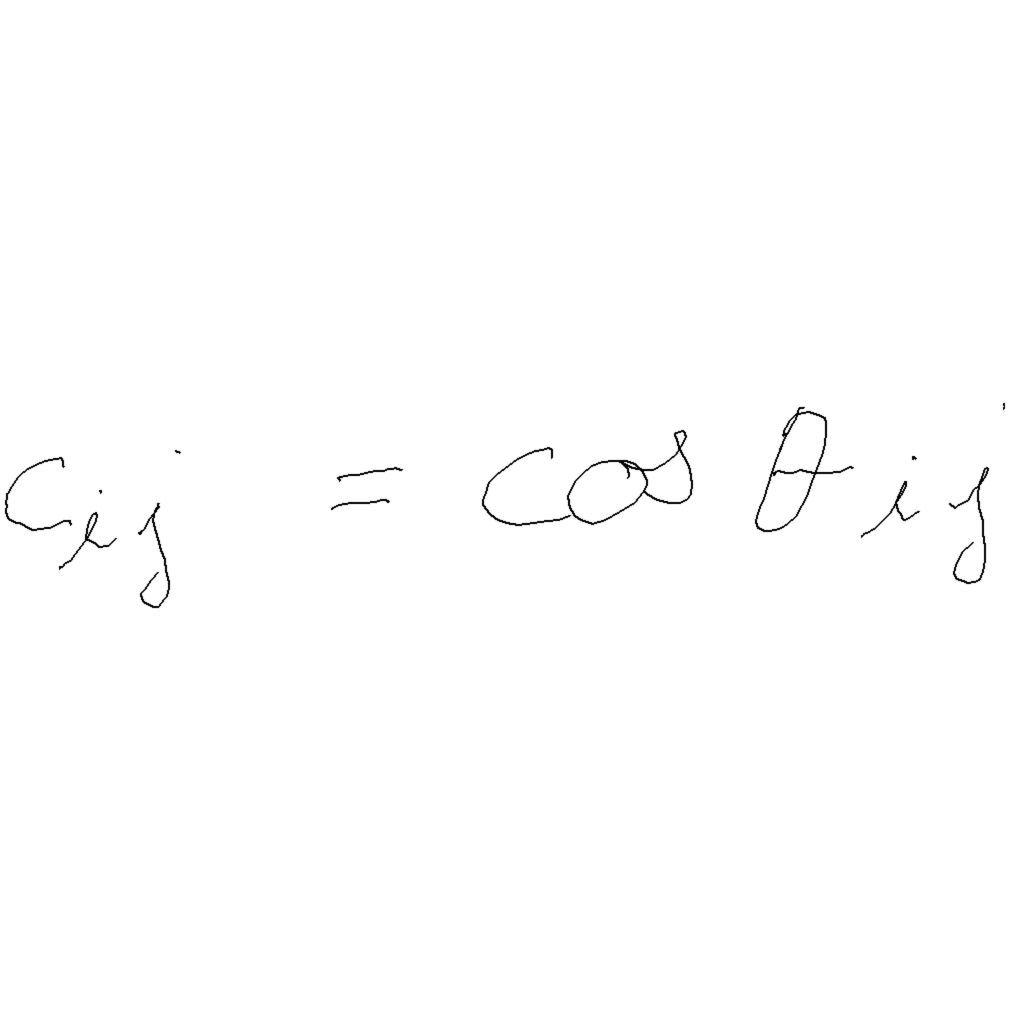 c_{ij} = cos θ_{ij}